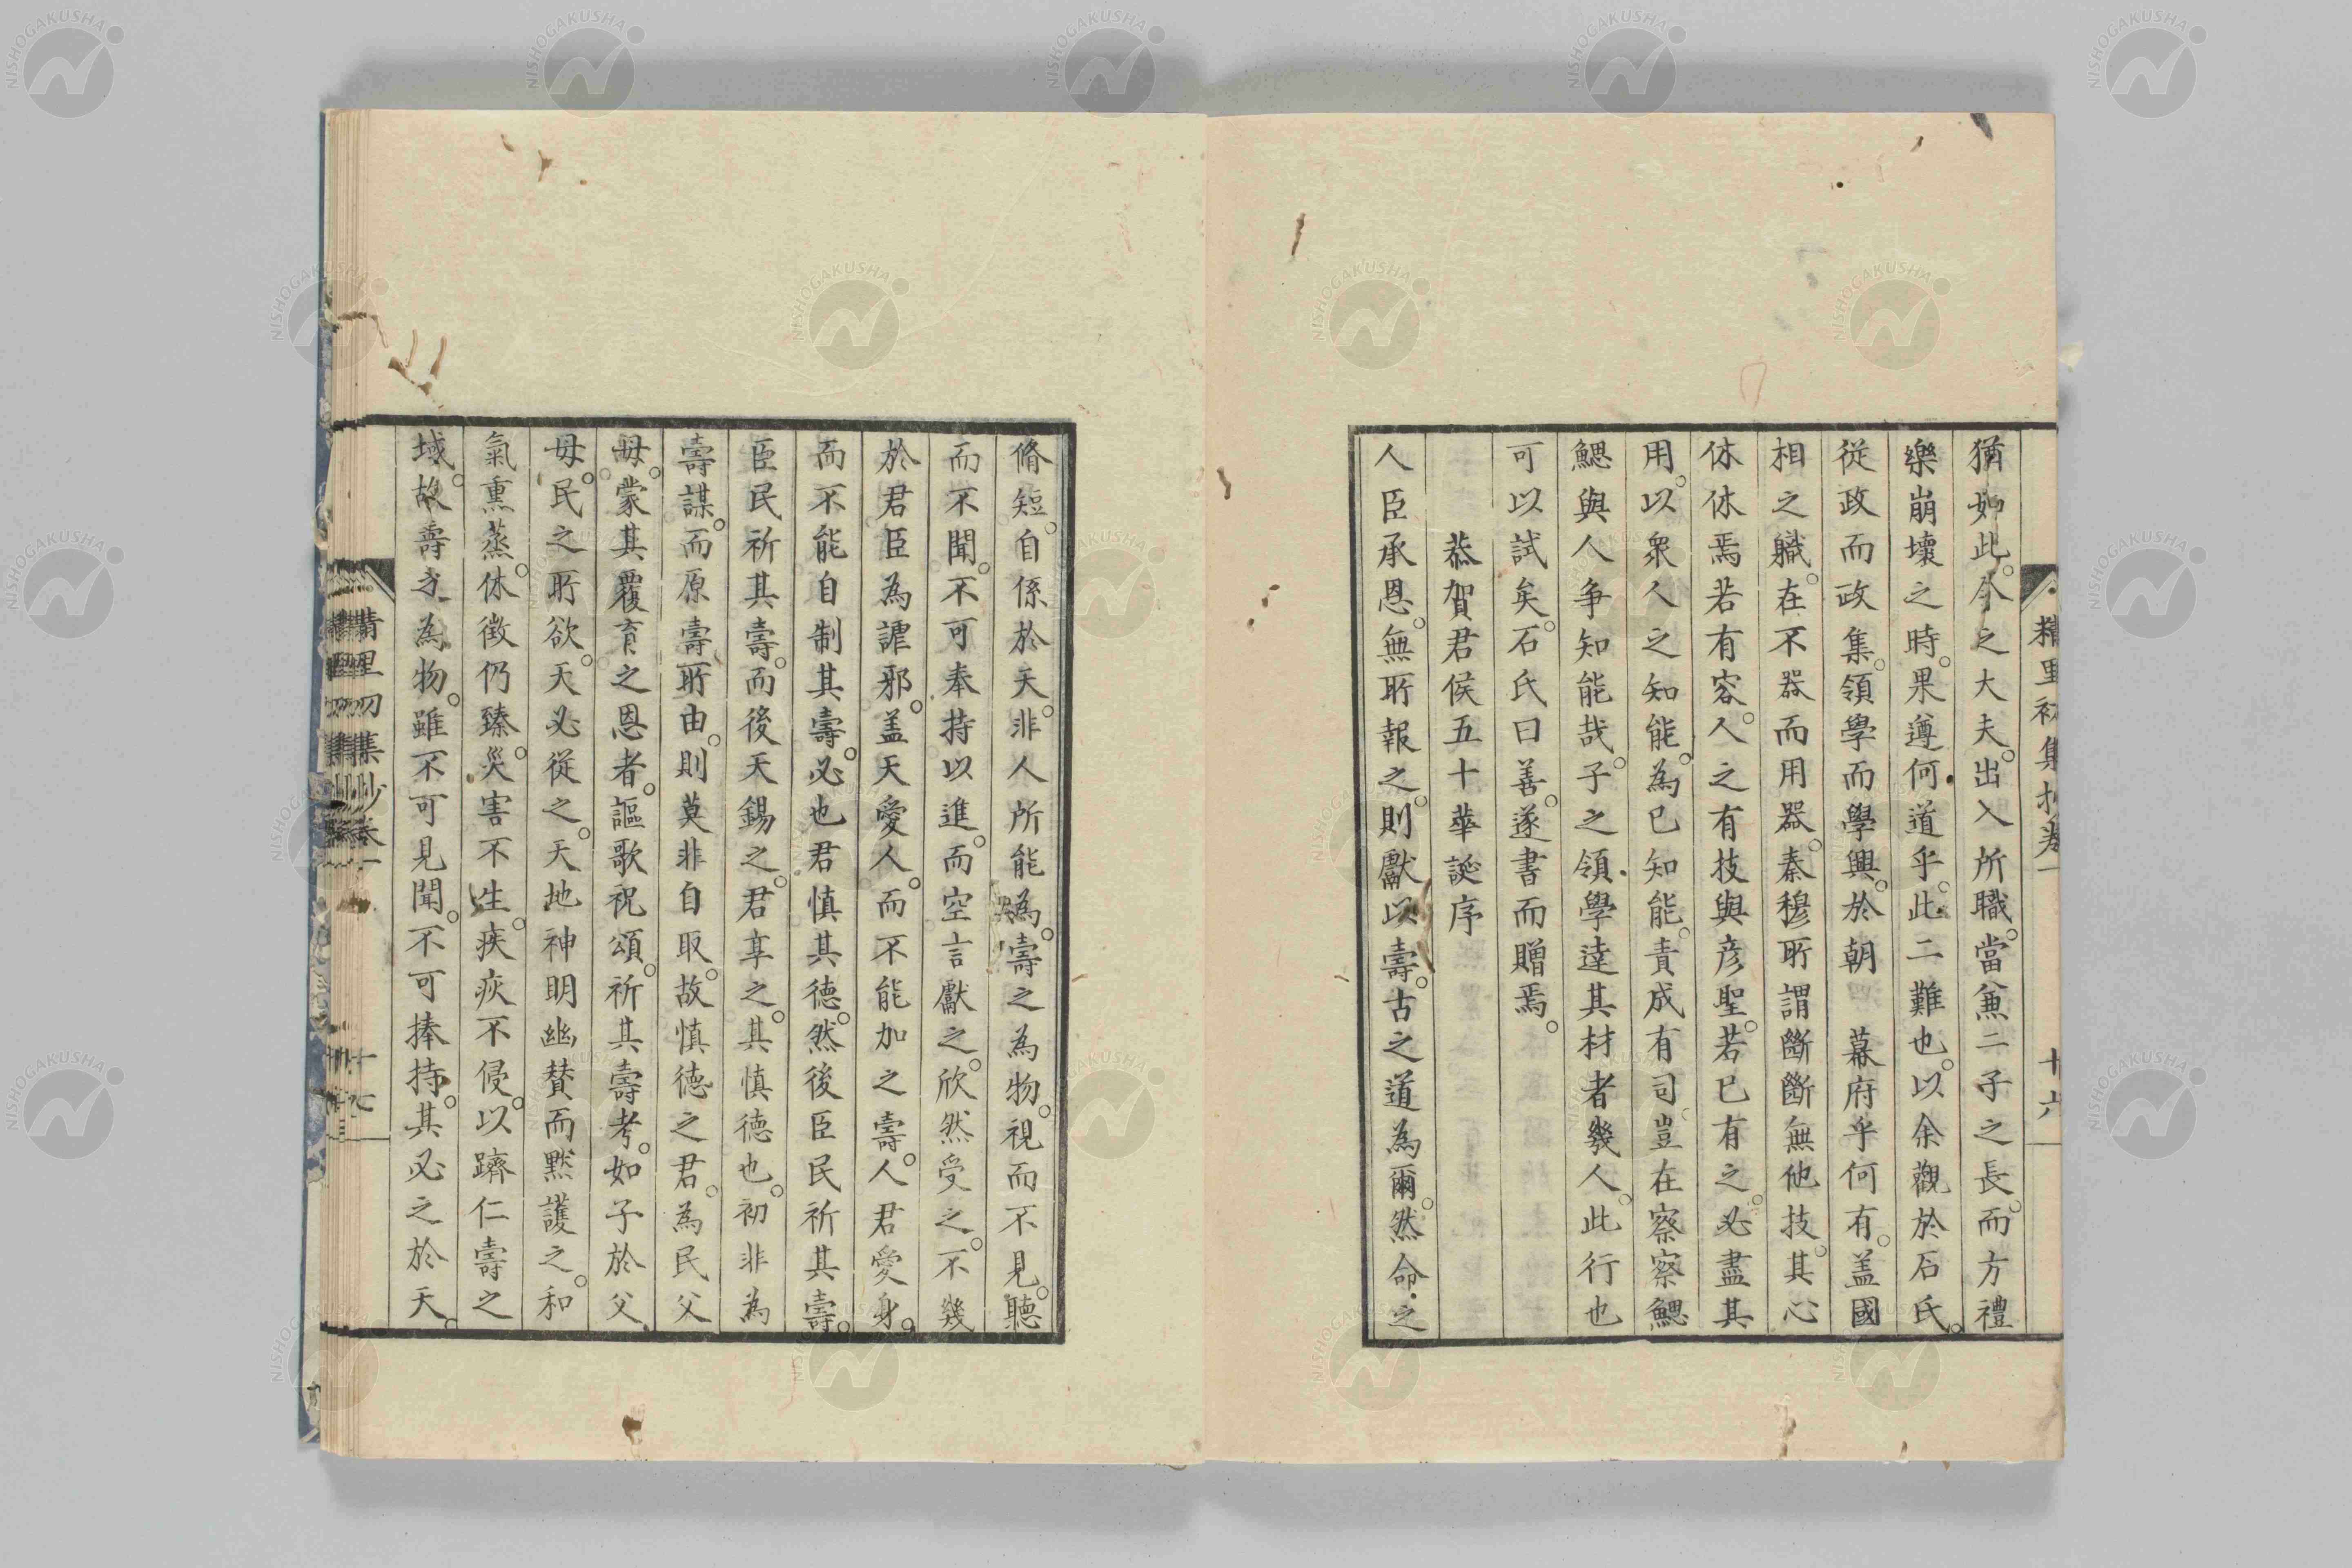 精里初集抄卷一 十六
猶如此。今之大夫。出入所職。當兼二子之長。而方禮
樂崩壞之時。果遵何道乎。此二難也。以余觀於石氏。
從政而政集。領學而學興。於朝 幕府乎何有。蓋國
相之職。在不器而用器。秦穆所謂斷斷無他技。其心
休休焉若有容。人之有技與彥聖。若已有之。必盡其
用。以衆人之知能。為已知能。責成有司。豈在察察鰓
鰓與人争知能哉。子之領學達其材者幾人。此行也
可以試矣。石氏曰善。遂書而贈焉。
恭賀君侯五十華誕序
人臣承恩。無所報之。則獻以壽。古之道為爾。然命之
脩短。自係於天。非人所能為。壽之為物。視而不見。聽
而不聞。不可奉持以進。而空言獻之。欣然受之。不幾
於君臣為謔邪。蓋天愛人。而不能加之壽。人君愛身。
而不能自制其壽。必也君慎其德。然後臣民祈其壽。
臣民祈其壽。而後天錫之。君享之。其慎德也。初非為
壽謀。而原壽所由。則莫非自取。故慎德之君。為民父
母。蒙其覆育之恩者。謳歌祝頌。祈其壽考。如子於父
母。民之所欲。天必從之。天地神明幽賛而默護之。和
氣熏蒸。休徵仍臻。災害不生。疾疢不侵。以躋仁壽之
域。故壽之為物。雖不可見聞。不可捧持。其必之於天。
精里初集抄卷一 十七
NISHOGAKUSHA